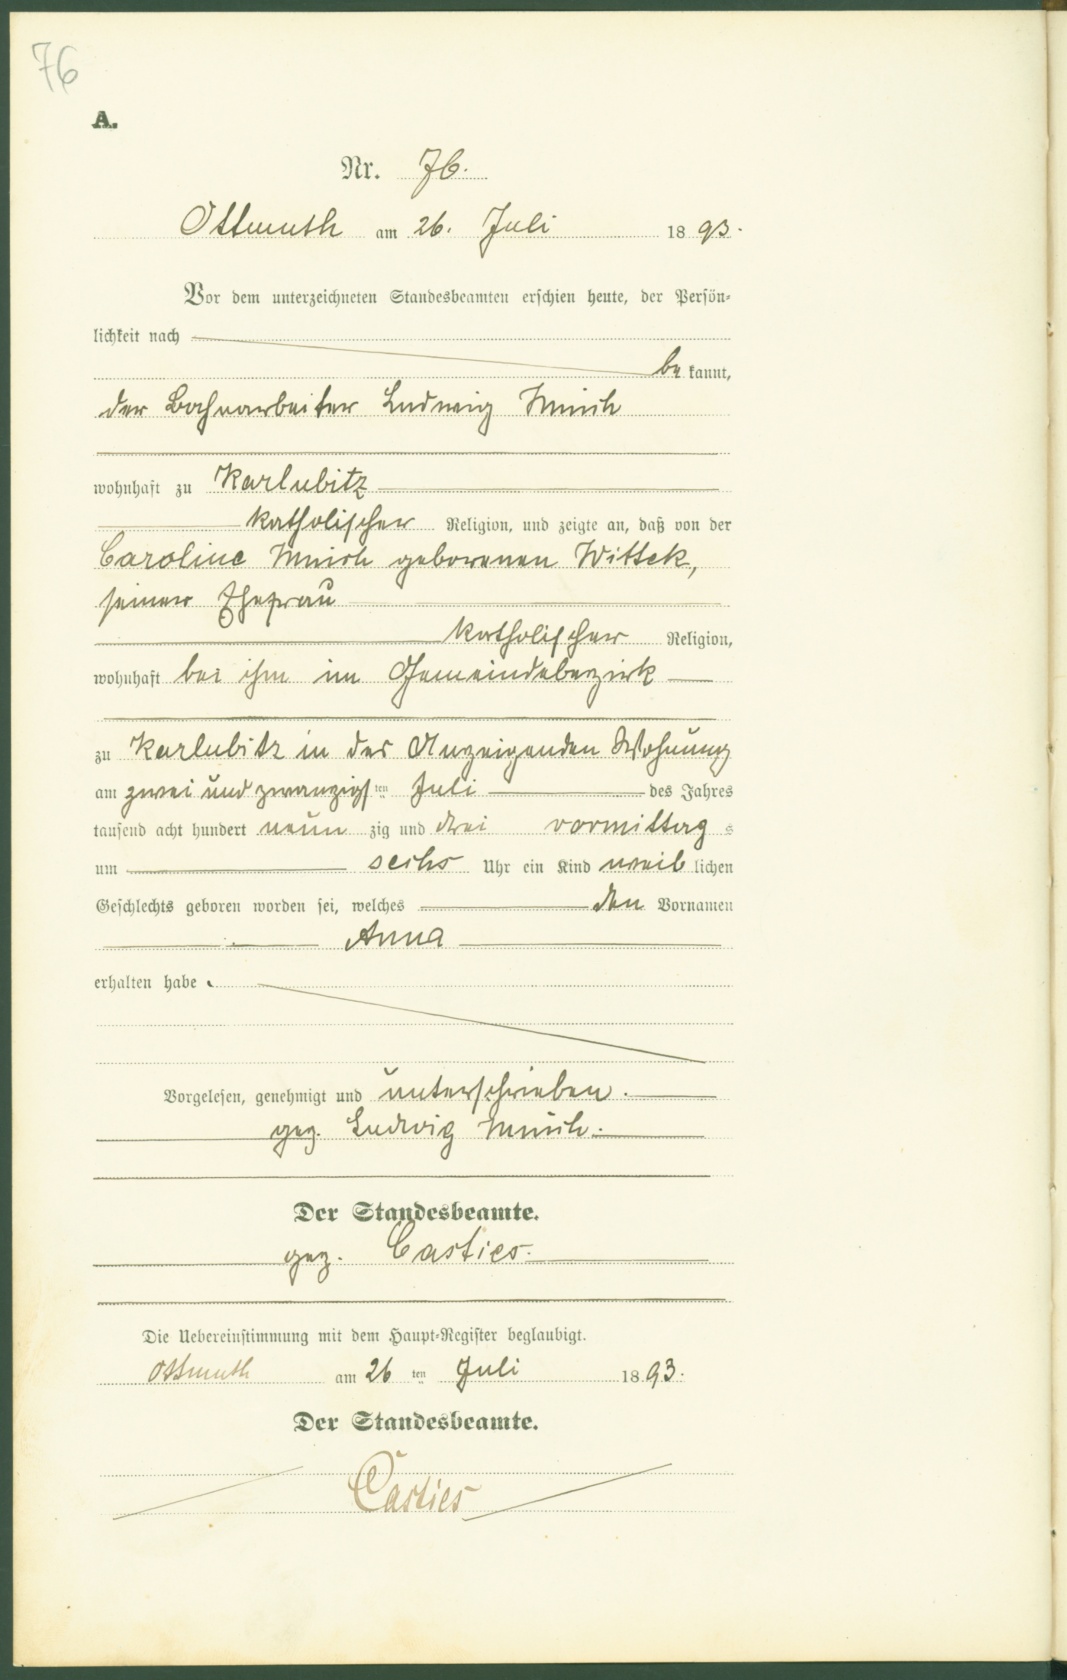 76
A.
Nr. 76.
Ottmuth am 26. Juli 1893.
Vor dem unterzeichneten Standesbeamten erschien heute, der Persön-
lichkeit nach
bekannt,
der Bahnarbeiter Ludwig Mnich
wohnhaft zu Karlubitz
katholischer Religion, und zeigte an, daß von der
Caroline Mnich geborenen Wittek,
seiner Ehefrau
katholischer Religion,
wohnhaft bei ihm im Gemeindebezirk
zu Karlubitz in des Anzeigenden Wohnung
am zwei und zwanzigsten Juli des Jahres
tausend acht hundert neunzig und drei vormittags
um sechs Uhr ein Kind weiblichen
Geschlechts geboren worden sei, welches den Vornamen
Anna
erhalten habe.
Vorgelesen, genehmigt und unterschrieben.
gez. Ludwig Mnich.
Der Standesbeamte.
gez. Casties.
Die Uebereinstimmung mit dem Haupt-Register beglaubigt.
Ottmuth am 26ten Juli 1893.
Der Standesbeamte.
Casties